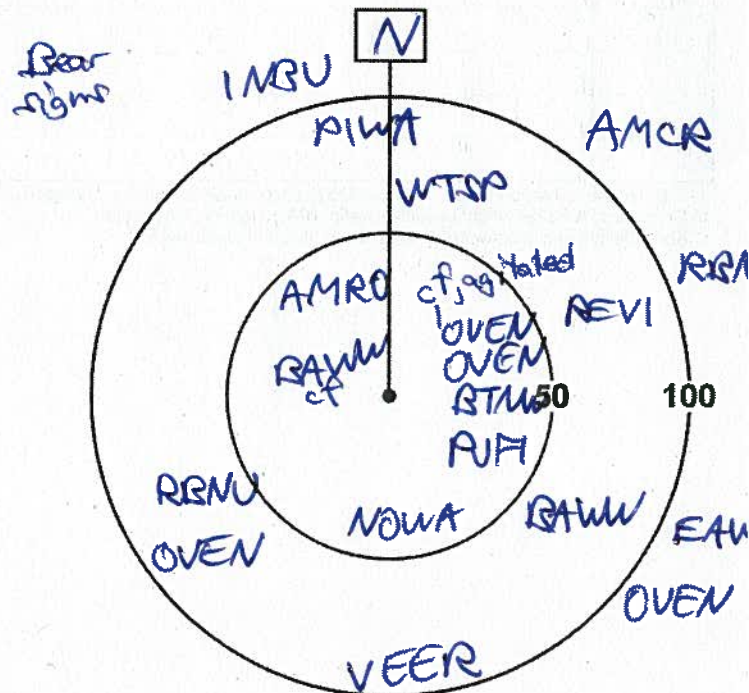 N
Bear
signs
INBU
PIWA
AMCR
WTSP
RBN
AMRO
cf, agitated
REVI
OVEN
BAWW
cf
OVEN
BTNW
50
100
PUFI
RBNU
NOWA
BAWW
EAW
OVEN
OVEN
VEER